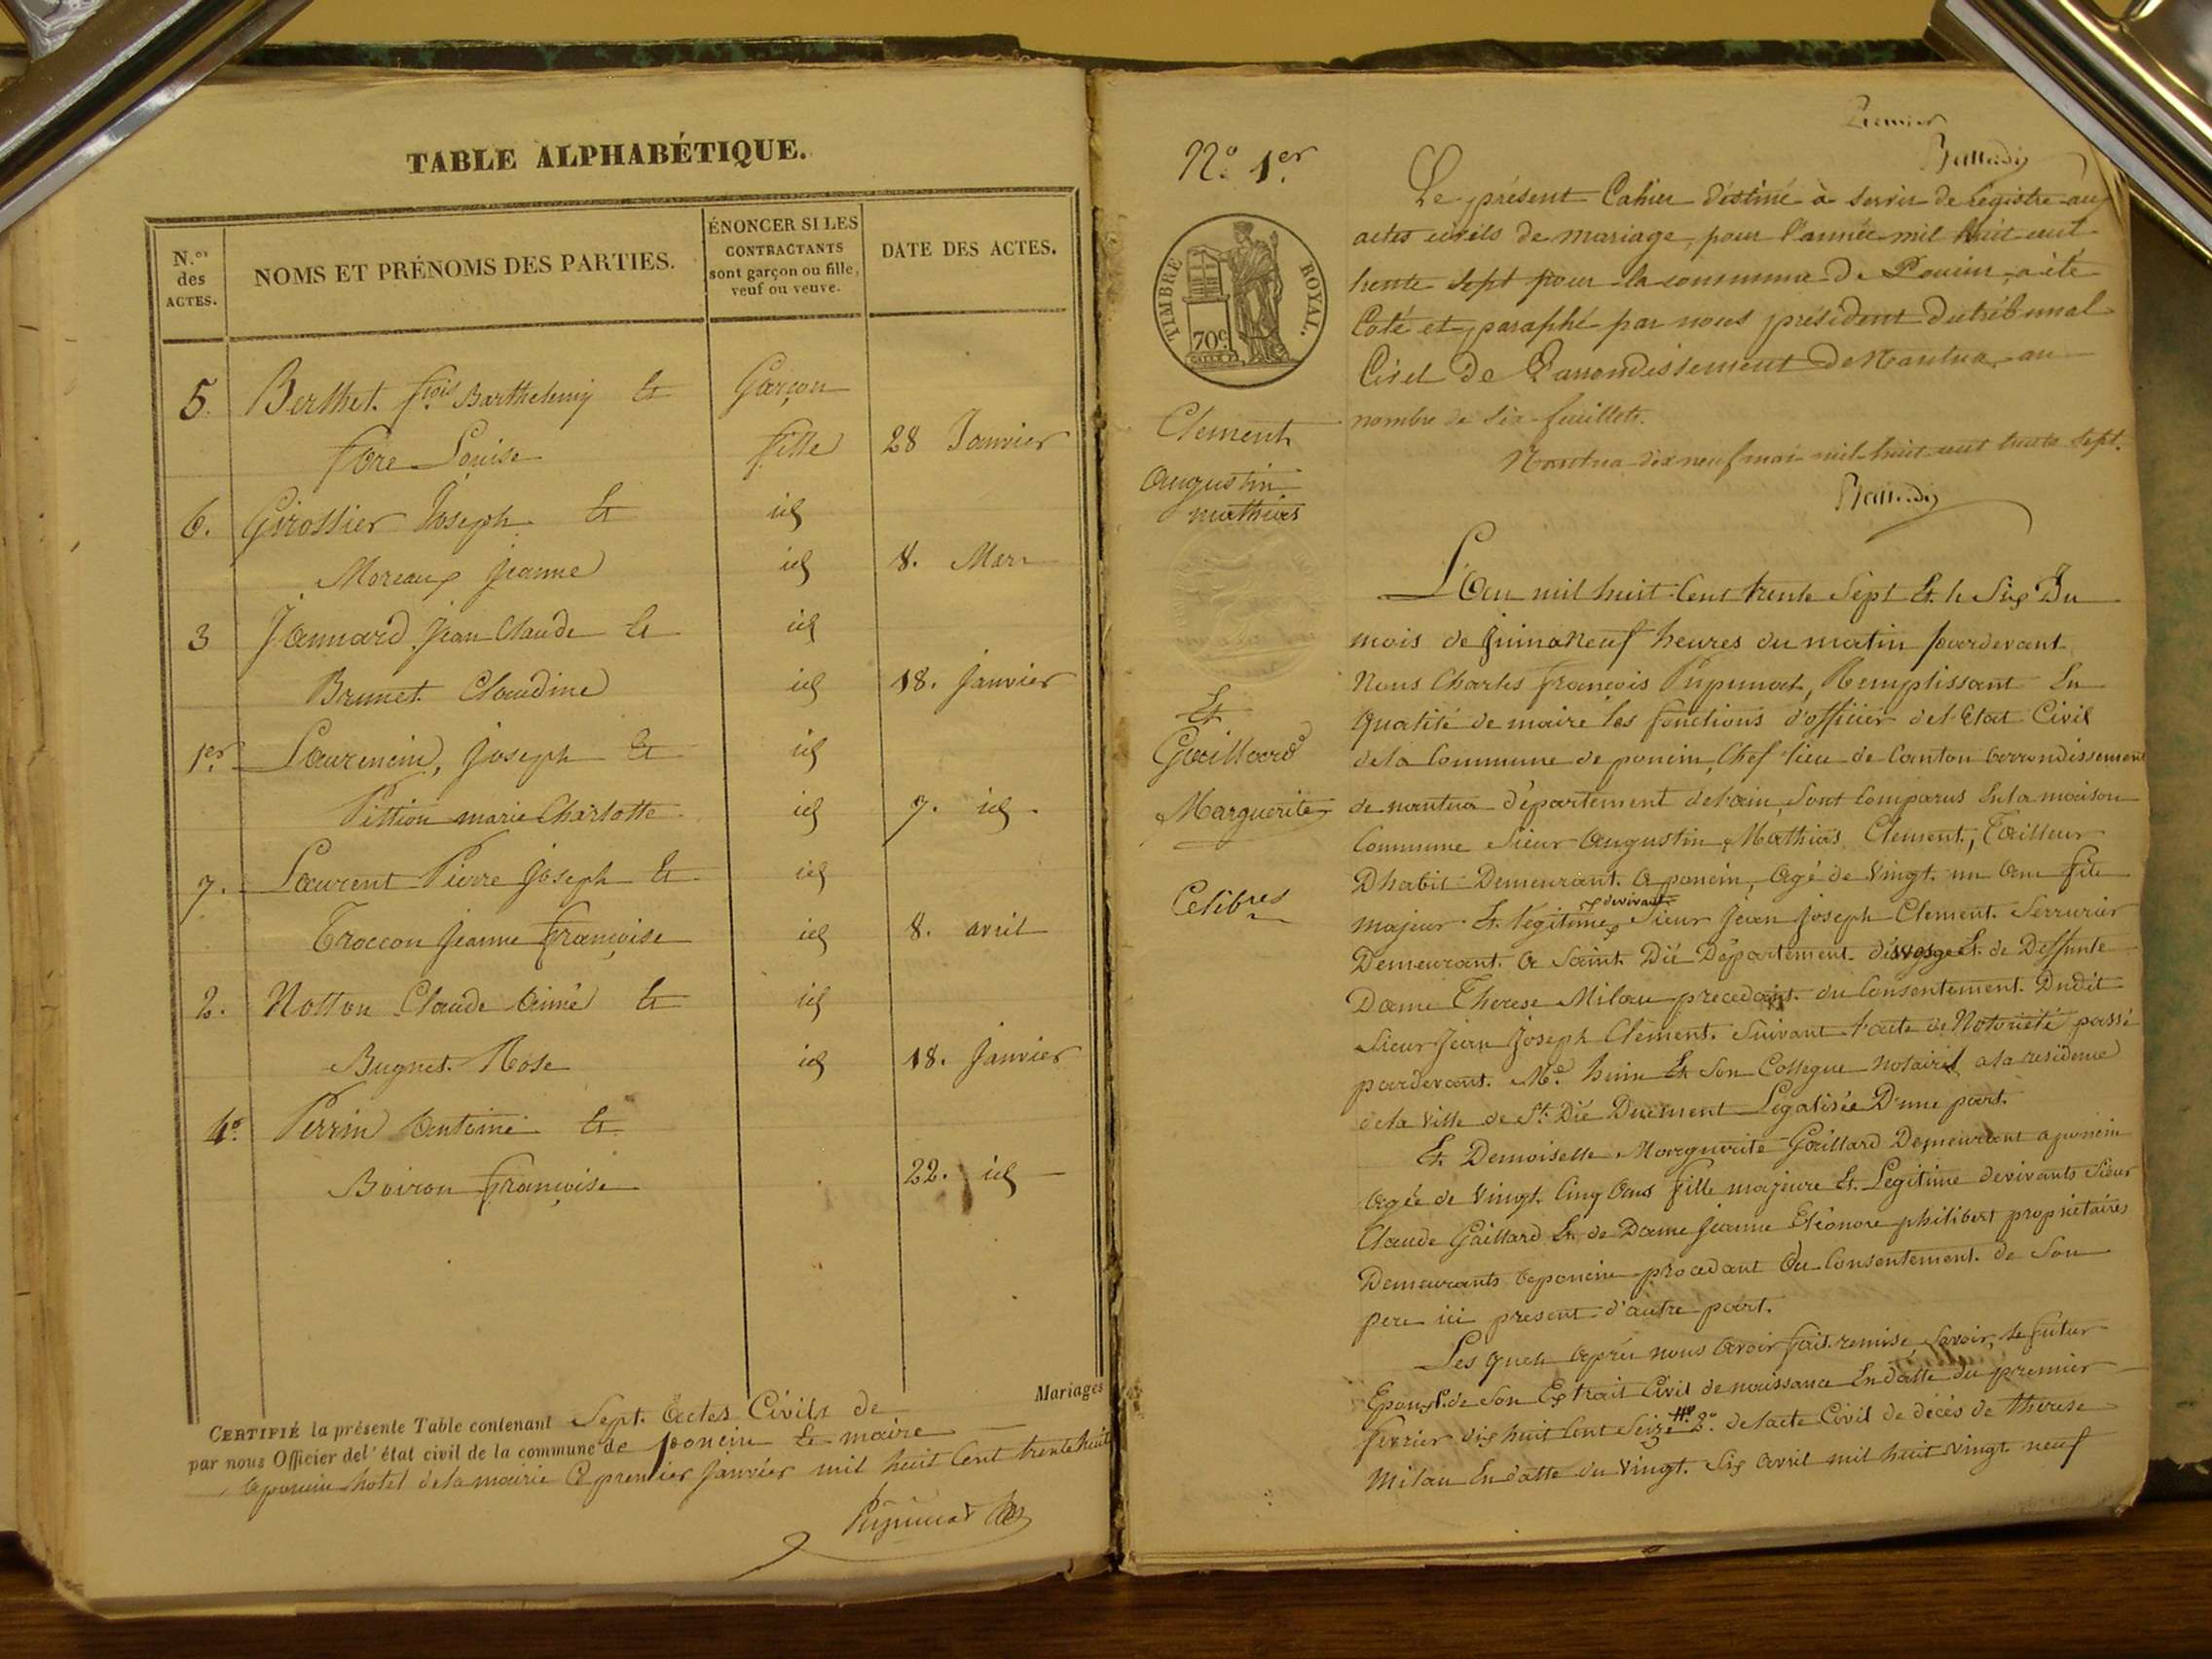 TABLE ALPHABÉTIQUE.
N.os des ACTES.
NOMS ET PRÉNOMS DES PARTIES.
ÉNONCER SI LES CONTRACTANTS sont garçon ou fille, veuf ou veuve.
DATE DES ACTES.
5. Berthet. fçois Barthelemy & Garçon
fore Louise fille 28 Janvier
6. Girossier Joseph & id
Moreaux Jeanne id 8. Mars
3 Jannard Jean Claude & id
Brunet Claudine id 18. Janvier
1er Laurencin, Joseph & id
Pittion marie Charlotte id 7. id.
7. Laurent Pierre Joseph & id
Troccon Jeanne Françoise id 8. avril
2. Notton Claude Aimé & id
Bugnet. Rose id 18. Janvier
4e Perrin Antoine &
Boiron françoise 22. id
Mariages
CERTIFIÉ la présente Table contenant Sept. Actes Civils de
par nous Officier del'état civil de la commune de poncin Le maire
Aponcin hotel dela mairie Ce premier Janvier mil huit Cent trente huit
No. 1er
Premier
TIMBRE ROYAL.
70c
Le présent Cahier destiné à servir de registre aux
actes civils de mariage, pour l'année mil huit cent
trente sept pour la commune de Poncin, a été
Coté et paraphé par nous président du tribunal
Civil De L'arrondissement De Nantua, au
nombre de six feuillets.
Nantua dix neuf mai mil huit cent trente sept.
Clement
Augustin
mathias
Et
Gaillard
Marguerite
Celibres
L'An mil huit Cent trente Sept Et le Six Du
mois de Juin a Neuf heures du matin pardevant
Nous Charles françois Pupunat, Remplissant En
Qualité de maire les fonctions d'officier de l'Etat Civil
dela Commune de poncin, Chef lieu de Canton arrondissement
de nantua département del'ain, Sont Comparus En la maison
Commune Sieur Augustin Mathias Clement, Tailleur
D'habit Demeurant. A poncin, Agé de Vingt. un An fils
majeur Et. légitime devivant Sieur Jean Joseph Clement. Serrurier
Demeurant. A Saint. Dié Département. des vosges Et. de Deffunte
Dame Therese Milau procedant. du Consentement. Dudit
Sieur Jean Joseph Clément. Suivant l'acte de Notoriété passé
pardevant. Me. huin Et Son Collegue notaires a la residence
dela Ville de St. Dié Duement Légalisée D'une part.
Et. Demoiselle Marguerite Gaillard Demeurant a poncin
Agée de Vingt. Cinq Ans fille majeure Et. Legitime devivants Sieur
Claude Gaillard Et de Dame Jeanne Eléonore philibert propriétaires
Demeurants Aponcin procedant Du Consentement. de Son
pere ici present d'autre part.
Les quels Après nous Avoir fait. remise, Savoir, le futur
Epoux 1o. de Son Extrait Civil de naissance En datte du premier
fevrier dix huit Cent Seize 2o. de lacte Civil de décès de therese
Milau En datte du Vingt. Six Avril mil huit Vingt neuf